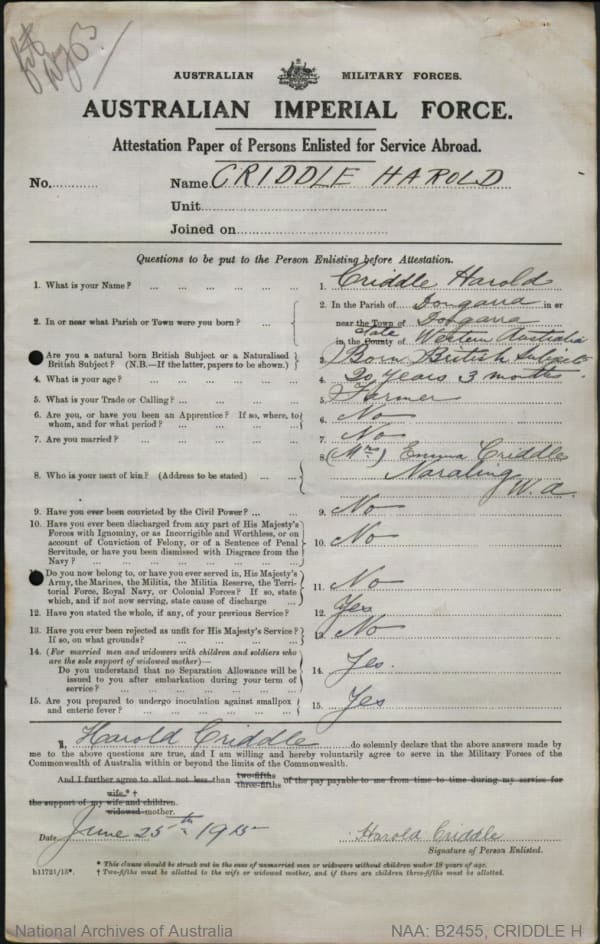 AUSTRALIAN MILITARY FORCES.
AUSTRALIAN IMPERIAL FORCE.
Attestation Paper of Persons Enlisted for Service Abroad.
No............ Name CRIDDLE HAROLD
Unit
Joined on
Questions to be put to the Person Enlisting before Attestation.
1. What is your Name? ... ... ... ... ... 1. Criddle Harold
2. In or near what Parish or Town were you born? ... 2. In the Parish of Dongarra in or
near the Town of Dongarra
in the County of State Western Australia
Are you a natural born British Subject or a Naturalised
British Subject? (N.B.—If the latter, papers to be shown.) 3. Born British Subject
4. What is your age? ... ... ... ... 4. 20 years 3 months
5. What is your Trade or Calling? ... ... ... 5. Farmer
6. Are you, or have you been an Apprentice? If so, where, to
whom, and for what period? ... ... ... 6. No
7. Are you married? ... ... ... ... 7. No
8. Who is your next of kin? (Address to be stated) ... ... 8. (Mrs) Emma Criddle
Naraling
W.A.
9. Have you ever been convicted by the Civil Power? ... ... 9. No
10. Have you ever been discharged from any part of His Majesty's
Forces with Ignominy, or as Incorrigible and Worthless, or on
account of Conviction of Felony, or of a Sentence of Penal
Servitude, or have you been dismissed with Disgrace from the
Navy? ... ... ... ... ... 10. No
Do you now belong to, or have you ever served in, His Majesty's
Army, the Marines, the Militia, the Militia Reserve, the Terri-
torial Force, Royal Navy, or Colonial Forces? If so, state
which, and if not now serving, state cause of discharge ... 11. No
12. Have you stated the whole, if any, of your previous Service? 12. Yes
13. Have you ever been rejected as unfit for His Majesty's Service?
If so, on what grounds? ... ... ... ... 13. No
14. (For married men and widowers with children and soldiers who
are the sole support of widowed mother)—
Do you understand that no Separation Allowance will be
issued to you after embarkation during your term of
service? ... ... ... ... ... 14. Yes.
15. Are you prepared to undergo inoculation against smallpox
and enteric fever? ... ... ... ... 15. Yes
I, Harold Criddle do solemnly declare that the above answers made by
me to the above questions are true, and I am willing and hereby voluntarily agree to serve in the Military Forces of the
Commonwealth of Australia within or beyond the limits of the Commonwealth.
And I further agree to allot not less than two-fifths three-fifths of the pay payable to me from time to time during my service for
wife.* †
the support of my wife and children.
widowed mother.
Date June 25th 1915 Harold Criddle
Signature of Person Enlisted.
* This clause should be struck out in the case of unmarried men or widowers without children under 18 years of age.
h11721/15*. † Two-fifths must be allotted to the wife or widowed mother, and if there are children three-fifths must be allotted.
National Archives of Australia NAA: B2455, CRIDDLE H